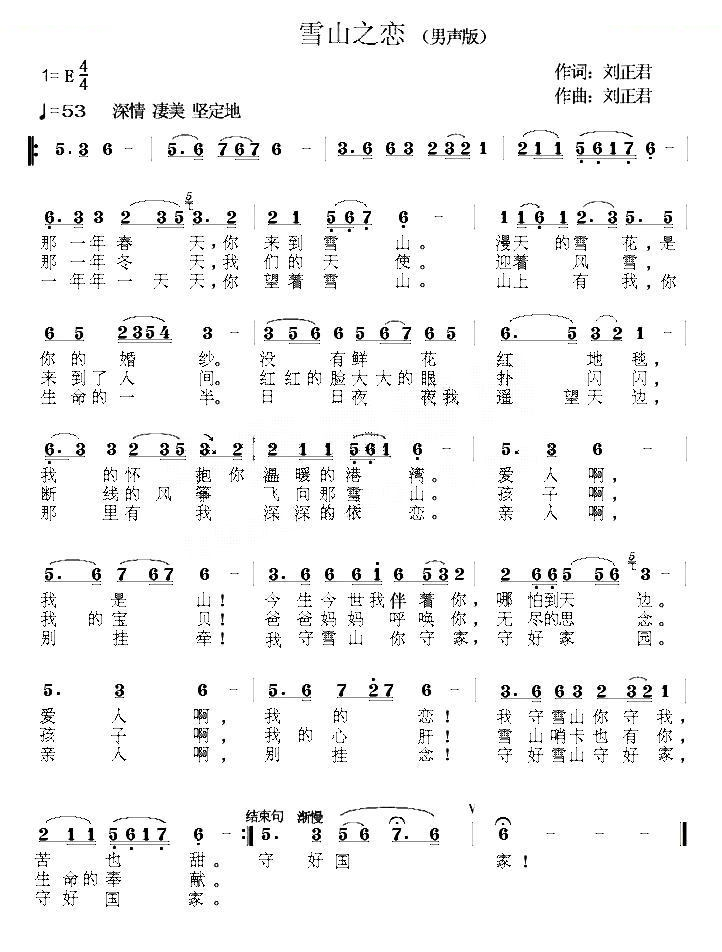 雪山之恋 （男声版）
1= E 4/4
作词：刘正君
作曲：刘正君
♩=53 深情 凄美 坚定地
5. 3 6 - | 5. 6 7 6 7 6 - | 3. 6 6 3 2 3 2 1 | 2 1 1 5 6 1 7 6 - |
6. 3 3 2 3 5 5 3. 2 | 2 1 5 6 7 6 - | 1 1 6 1 2. 3 5. 5 |
那 一 年 春 天，你 来 到 雪 山。 漫天 的 雪 花，是
那 一 年 冬 天，我 们 的 天 使。 迎着 风 雪，
一 年 年 一 天 天，你 望 着 雪 山。 山上 有 我，你
6 5 2 3 5 4 3 - | 3 5 6 6 5 6 7 6 5 | 6. 5 3 2 1 - |
你 的 婚 纱。 没 有 鲜 花 红 地 毯，
来 到 了 人 间。 红 红 的 脸 大 大 的 眼 扑 闪 闪，
生 命 的 一 半。 日 日 夜 夜 我 遥 望 天 边，
6. 3 3 2 3 5 3. 2 | 2 1 1 5 6 1 6 - | 5. 3 6 - |
我 的 怀 抱 你 温 暖 的 港 湾。 爱 人 啊，
断 线 的 风 筝 飞 向 那 雪 山。 孩 子 啊，
那 里 有 我 深 深 的 依 恋。 亲 人 啊，
5. 6 7 6 7 6 - | 3. 6 6 6 1 6 5 3 2 | 2 6 6 5 5 6 5 3 - |
我 是 山！ 今 生 今 世 我 伴 着 你，哪 怕 到 天 边。
我 的 宝 贝！ 爸 爸 妈 妈 呼 唤 你，无 尽 的 思 念。
别 挂 牵！ 我 守 雪 山 你 守 家，守 好 家 园。
5. 3 6 - | 5. 6 7 2 7 6 - | 3. 6 6 3 2 3 2 1 |
爱 人 啊， 我 的 恋！ 我 守 雪 山 你 守 我，
孩 子 啊， 我 的 心 肝！ 雪 山 哨 卡 也 有 你，
亲 人 啊， 别 挂 念！ 守 好 雪 山 守 好 家，
结束句 渐慢 V
2 1 1 5 6 1 7 6 - :| 5. 3 5 6 7. 6 | 6 - - - ||
苦 也 甜。 守 好 国 家！
生 命 的 奉 献。
守 好 国 家。